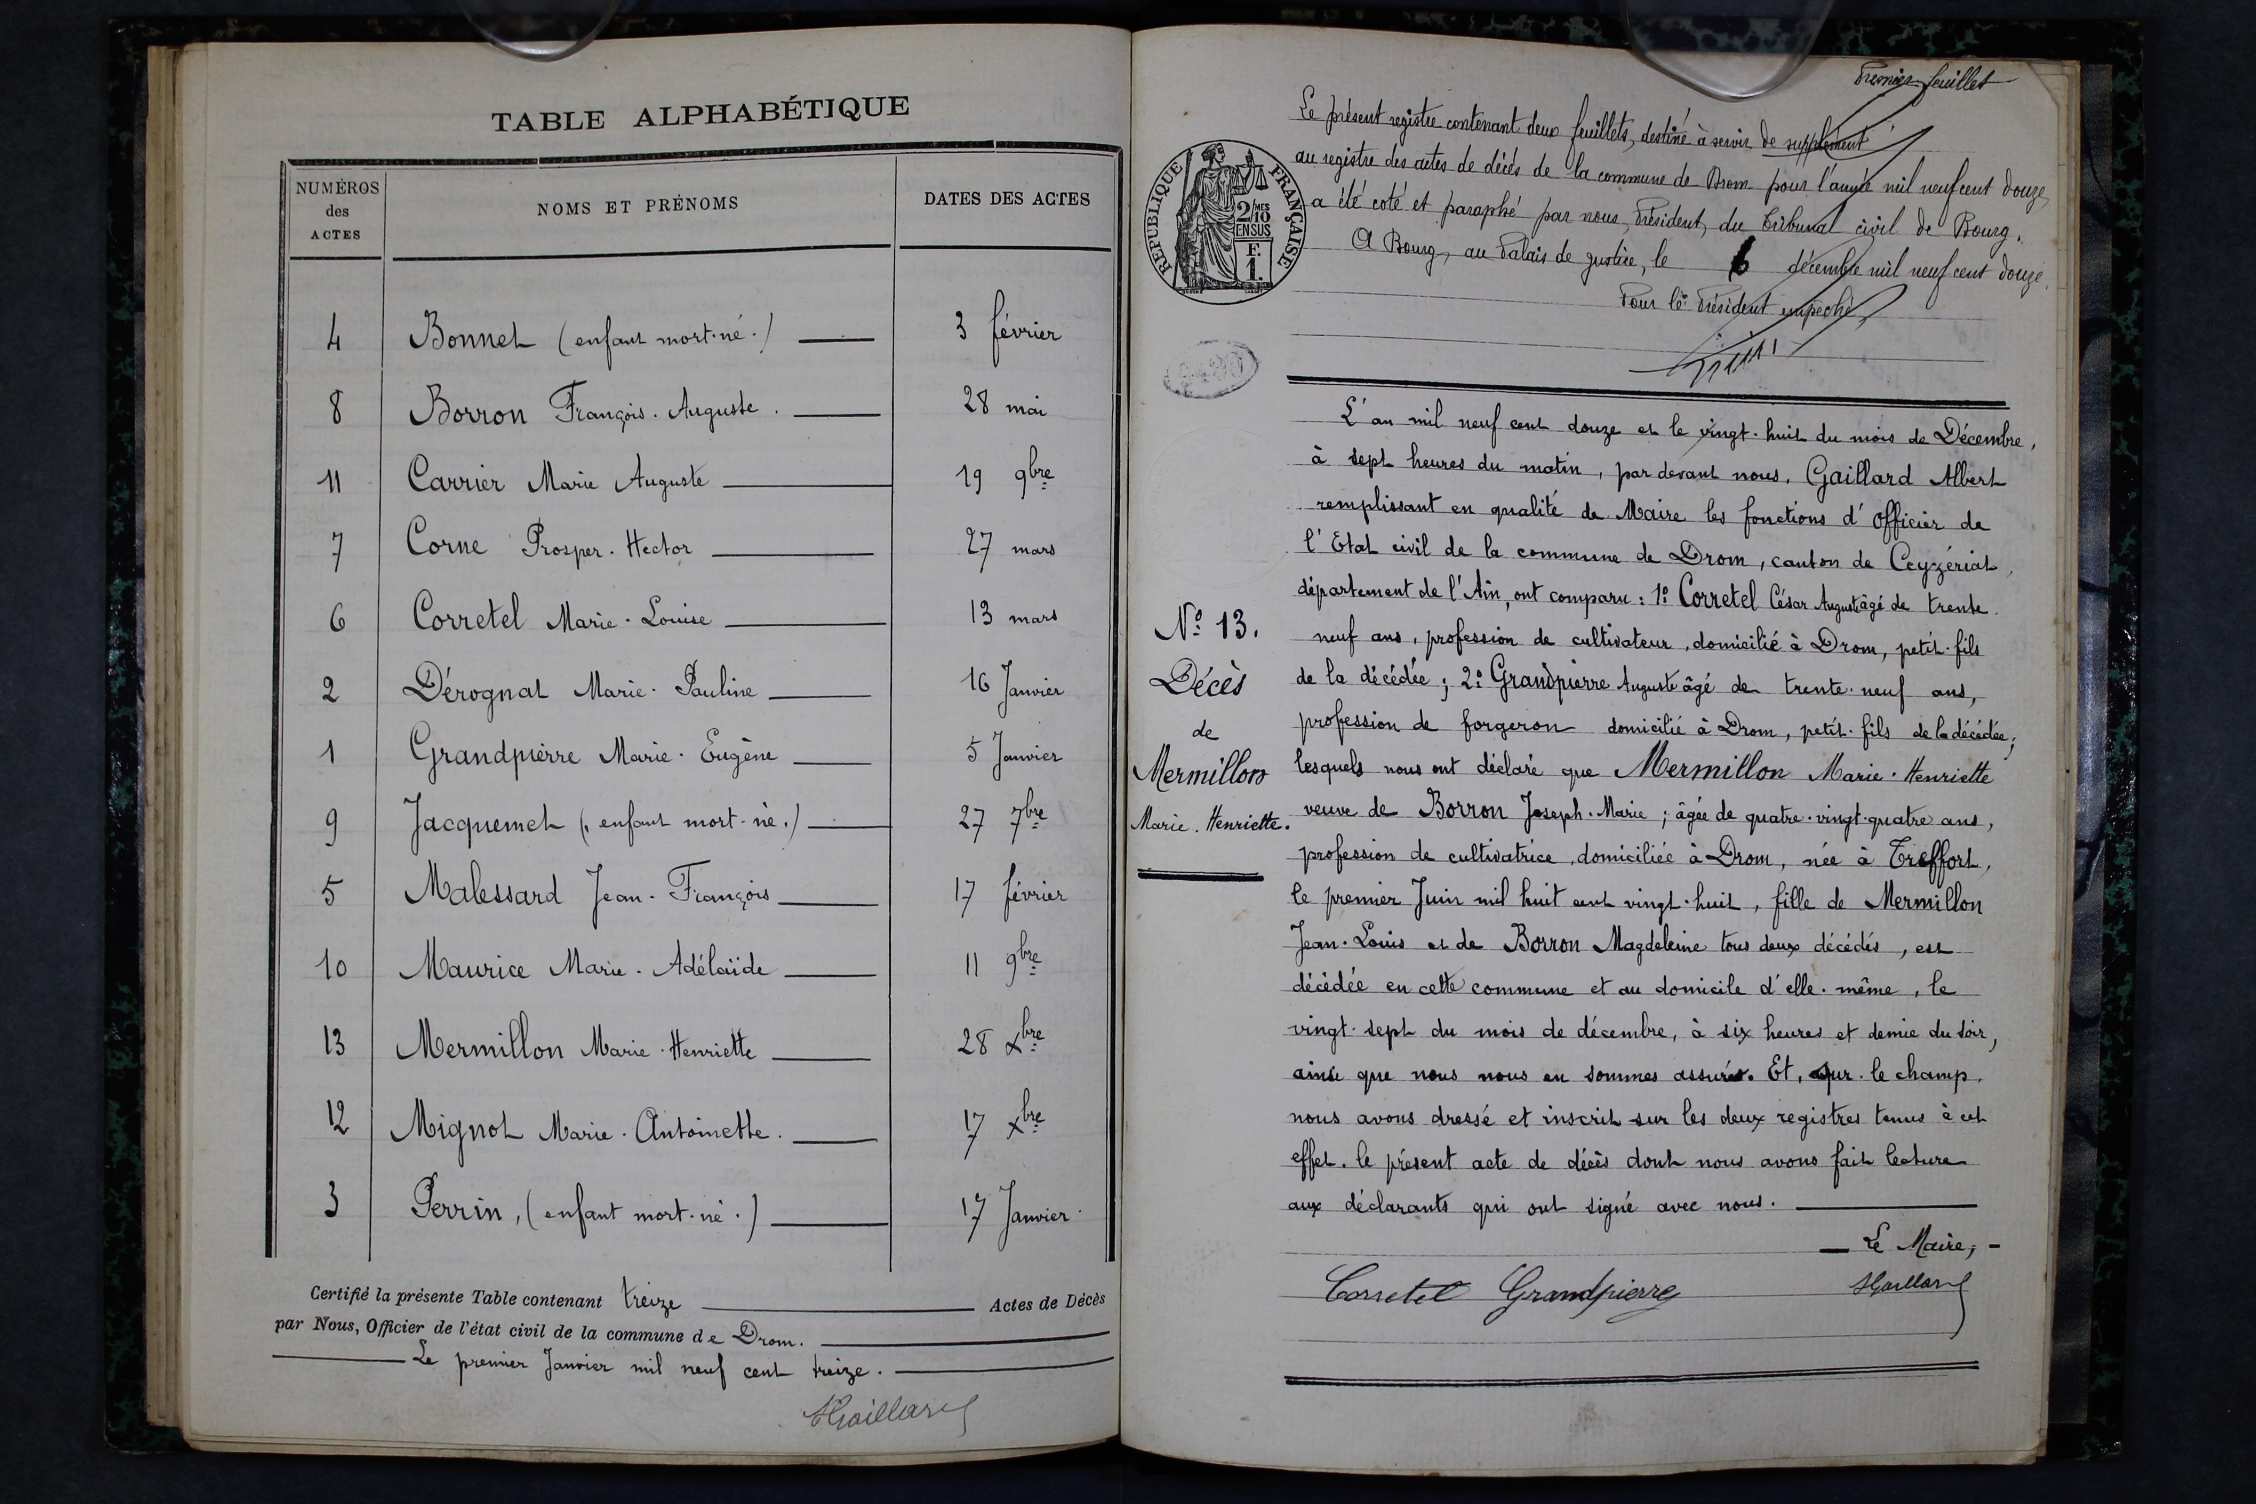 TABLE ALPHABÉTIQUE
NUMÉROS des ACTES
NOMS ET PRÉNOMS
DATES DES ACTES
4 Bonnet (enfant mort-né.) 3 février
8 Borron François-Auguste. 28 mai
11 Carrier Marie Auguste 19 9bre
7 Corne Prosper-Hector 27 mars
6 Corretel Marie-Louise 13 mars
2 Dérognat Marie-Pauline 16 Janvier
1 Grandpierre Marie-Eugène 5 Janvier
9 Jacquemet (enfant mort-né.) 27 7bre
5 Malessard Jean-François 17 février
10 Maurice Marie-Adélaïde 11 9bre
13 Mermillon Marie-Henriette 28 xbre
12 Mignot Marie-Antoinette. 17 xbre
3 Perrin, (enfant mort-né.) 17 Janvier
Certifié la présente Table contenant treize Actes de Décès
par Nous, Officier de l'état civil de la commune de Drom.
Le premier Janvier mil neuf cent treize.
AGaillard
Premier feuillet
Le présent registre contenant deux feuillets, destiné à servir de supplément
au registre des actes de décès de la commune de Drom pour l'année mil neuf cent douze,
a été coté et paraphé par nous, Président, du Tribunal civil de Bourg.
A Bourg, au Palais de Justice, le 6 décembre mil neuf cent douze.
Pour le Président empêché,
RÉPUBLIQUE FRANÇAISE
2/10MES
EN SUS
F.
1.
L'an mil neuf cent douze et le vingt-huit du mois de Décembre,
à sept heures du matin, par devant nous, Gaillard Albert
remplissant en qualité de Maire les fonctions d'officier de
l'Etat civil de la commune de Drom, canton de Ceyzériat,
département de l'Ain, ont comparu : 1° Corretel César Auguste âgé de trente-
neuf ans, profession de cultivateur, domicilié à Drom, petit-fils
de la décédée ; 2° Grandpierre Auguste âgé de trente-neuf ans,
profession de forgeron domicilié à Drom, petit-fils de la décédée ;
lesquels nous ont déclaré que Mermillon Marie-Henriette
veuve de Borron Joseph-Marie ; âgée de quatre-vingt-quatre ans,
profession de cultivatrice, domiciliée à Drom, née à Treffort,
le premier Juin mil huit cent vingt-huit, fille de Mermillon
Jean-Louis et de Borron Magdeleine tous deux décédés, est
décédée en cette commune et au domicile d'elle-même, le
vingt-sept du mois de décembre, à six heures et demie du soir,
ainsi que nous nous en sommes assurés. Et, sur-le champ,
nous avons dressé et inscrit sur les deux registres tenus à cet
effet, le présent acte de décès dont nous avons fait lecture
aux déclarants qui ont signé avec nous.
Le Maire,
Corretel Grandpierre AGaillard
N° 13.
Décès
de
Mermillon
Marie-Henriette.